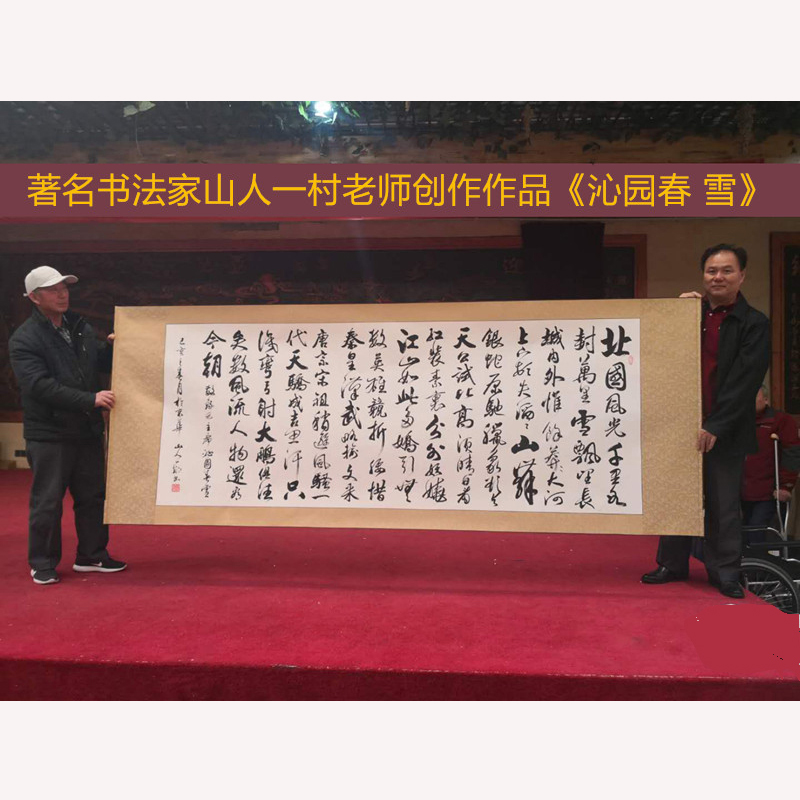 著名书法家山人一村老师创作作品《沁园春 雪》
北國風光千里冰
封萬里雪飄望長
城内外惟餘莽大河
上下頓失滔〻山舞
銀蛇原馳臘象欲與
天公試比高須晴日看
紅裝素裹分外妖嬈
江山如此多嬌引無
數英雄競折腰惜
秦皇漢武略輸文采
唐宗宋祖稍遜風騷一
代天驕成吉思汗只
識彎弓射大鵰俱往
矣數風流人物還看
今朝 敬錄毛主席沁園春雪
山人一村書